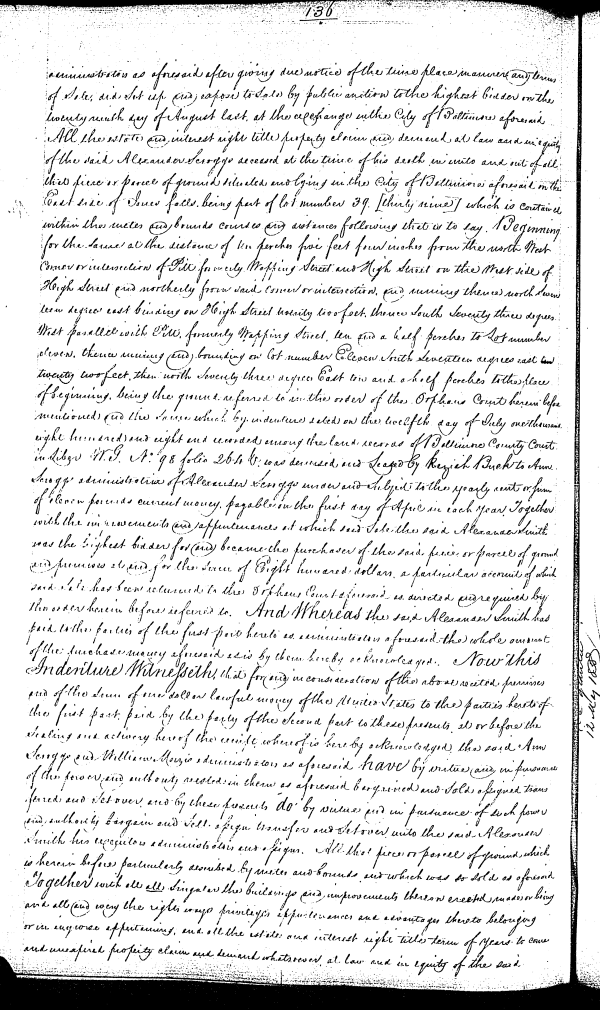 136
administrators as aforesaid after giving due notice of the time place manner and terms
of Sale, did Set up and expose to Sale by public auction to the highest bidder on the
twenty ninth day of August last, at the exchange in the City of Baltimore aforesaid
All the estate and interest right title property claim and demand at law and in equity
of the said Alexander Scroggs deceased at the time of his death in into and out of all
that piece or parcel of ground situated and lying in the City of Baltimore aforesaid on the
East side of Jones falls, being part of lot number 39. [thirty nine] which is contained
within the metes and bounds courses and distances following that is to say. Beginning
for the Same at the distance of ten perches five feet four inches from the north West
Corner or intersection of Pitt formerly Wapping Street and High Street on the West side of
High Street and northerly from said corner or intersection, and running thence north Seven
teen degrees east binding on High Street twenty two feet, thence South Seventy three degrees
West parallel with Pitt, formerly Wapping Street, ten and a half perches to Lot number
eleven, thence running and bounding on lot number Eleven South Seventeen degrees east
twenty two feet, then north Seventy three degrees East ten and a half perches to the place
of beginning, being the ground referred to in the order of the Orphans Court herein before
mentioned and the Same which by indenture dated on the twelfth day of July one thousand
eight hundred and eight and recorded among the land records of Baltimore County Court
in Liber W.G. No. 98 folio was demised and Leased by Keziah Buck to Ann
Scroggs administratrix of Alexander Scroggs under and Subject to the yearly rent or sum
of eleven pounds current money, payable on the first day of April in each year Together
with the improvements and appurtenances at which said Sale the said Alexander Smith
was the highest bidder for and became the purchaser of the said piece or parcel of ground
and premises at and for the Sum of Eight hundred dollars, a particular account of which
said Sale has been returned to the Orphans Court aforesaid as directed and required by
the order herein before referred to. And Whereas the said Alexander Smith has
paid to the parties of the first part hereto as administrators aforesaid the whole amount
of the purchase money aforesaid as is by them hereby acknowledged. Now this
Indenture Witnesseth, that for and in consideration of the above recited premises
and of the Sum of one dollar lawful money of the United States to the parties hereto of
the first part, paid by the party of the Second part to these presents, at or before the
Sealing and delivery hereof the receipt whereof is hereby acknowledged, the said Ann
Scroggs and William administrators as aforesaid have by virtue and in pursuance
of the power and authority vested in them as aforesaid bargained and Sold assigned trans
ferred and Set over, and by these presents do by virtue and in pursuance of such power
and authority bargain and Sell, assign transfer and Set over, unto the said Alexander
Smith his executors administrators and assigns. All that piece or parcel of ground which
is herein before particularly described by metes and bounds, and which was so sold as aforesaid
Together with all all Singular the buildings and improvements thereon erected made or being
and all and every the rights ways privileges appurtenances and advantages thereto belonging
or in any wise appertaining, and all the estate and interest right title term of years to come
and unexpired property claim and demand whatsoever, at law and in equity of the said
12 July 1808